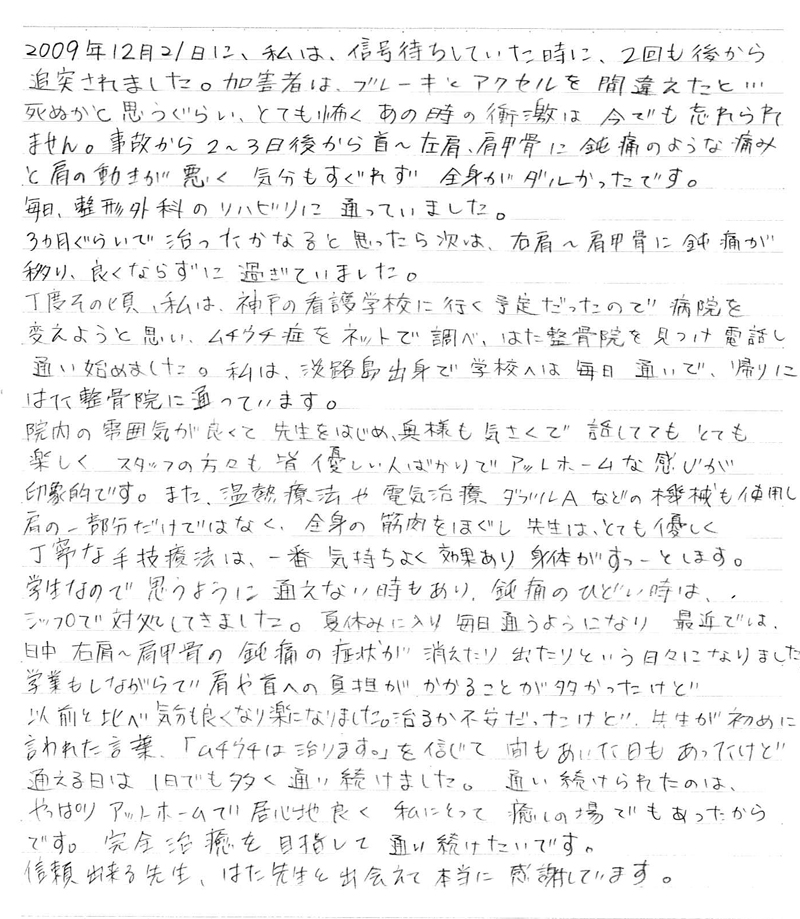 2009年12月21日に、私は、信号待ちしていた時に、2回も後から
追突されました。加害者は、ブレーキとアクセルを間違えたと…
死ぬかと思うぐらい、とても怖くあの時の衝激は今でも忘れられ
ません。事故から2～3日後から首～左肩、肩甲骨に鈍痛のような痛み
と肩の動きが悪く気分もすぐれず全身がダルかったです。
毎日、整形外科のリハビリに通っていました。
3カ月ぐらいで治ったかなぁと思ったら次は、右肩～肩甲骨に鈍痛が
移り、良くならずに過ぎていました。
丁度その頃、私は、神戸の看護学校に行く予定だったので病院を
変えようと思い、ムチウチ症をネットで調べ、はた整骨院を見つけ電話し
通い始めました。私は、淡路島出身で学校へは毎日通いで、帰りに
はた整骨院に通っています。
院内の雰囲気が良くて先生をはじめ、奥様も気さくで話しててもとても
楽しくスタッフの方々も皆優しい人ばかりでアットホームな感じが
印象的です。また、温熱療法や電気治療、ダブルAなどの機械も使用し
肩の一部分だけではなく、全身の筋肉をほぐし先生は、とても優しく
丁寧な手技療法は、一番気持ちよく効果あり身体がすっーとします。
学生なので思うように通えない時もあり、鈍痛のひどい時は、
シップで対処してきました。夏休みに入り毎日通うようになり最近では、
日中右肩～肩甲骨の鈍痛の症状が消えたり出たりという日々になりました
学業もしながらで肩や首への負担がかかることが多かったけど
以前と比べ気分も良くなり楽になりました。治るか不安だったけど、先生が初めに
言われた言葉、「ムチウチは治ります。」を信じて間もあいた日もあったけど
通える日は1日でも多く通い続けました。通い続けられたのは、
やっぱりアットホームで居心地良く私にとって癒しの場でもあったから
です。完全治癒を目指して通い続けたいです。
信頼出来る先生、はた先生と出会えて本当に感謝しています。